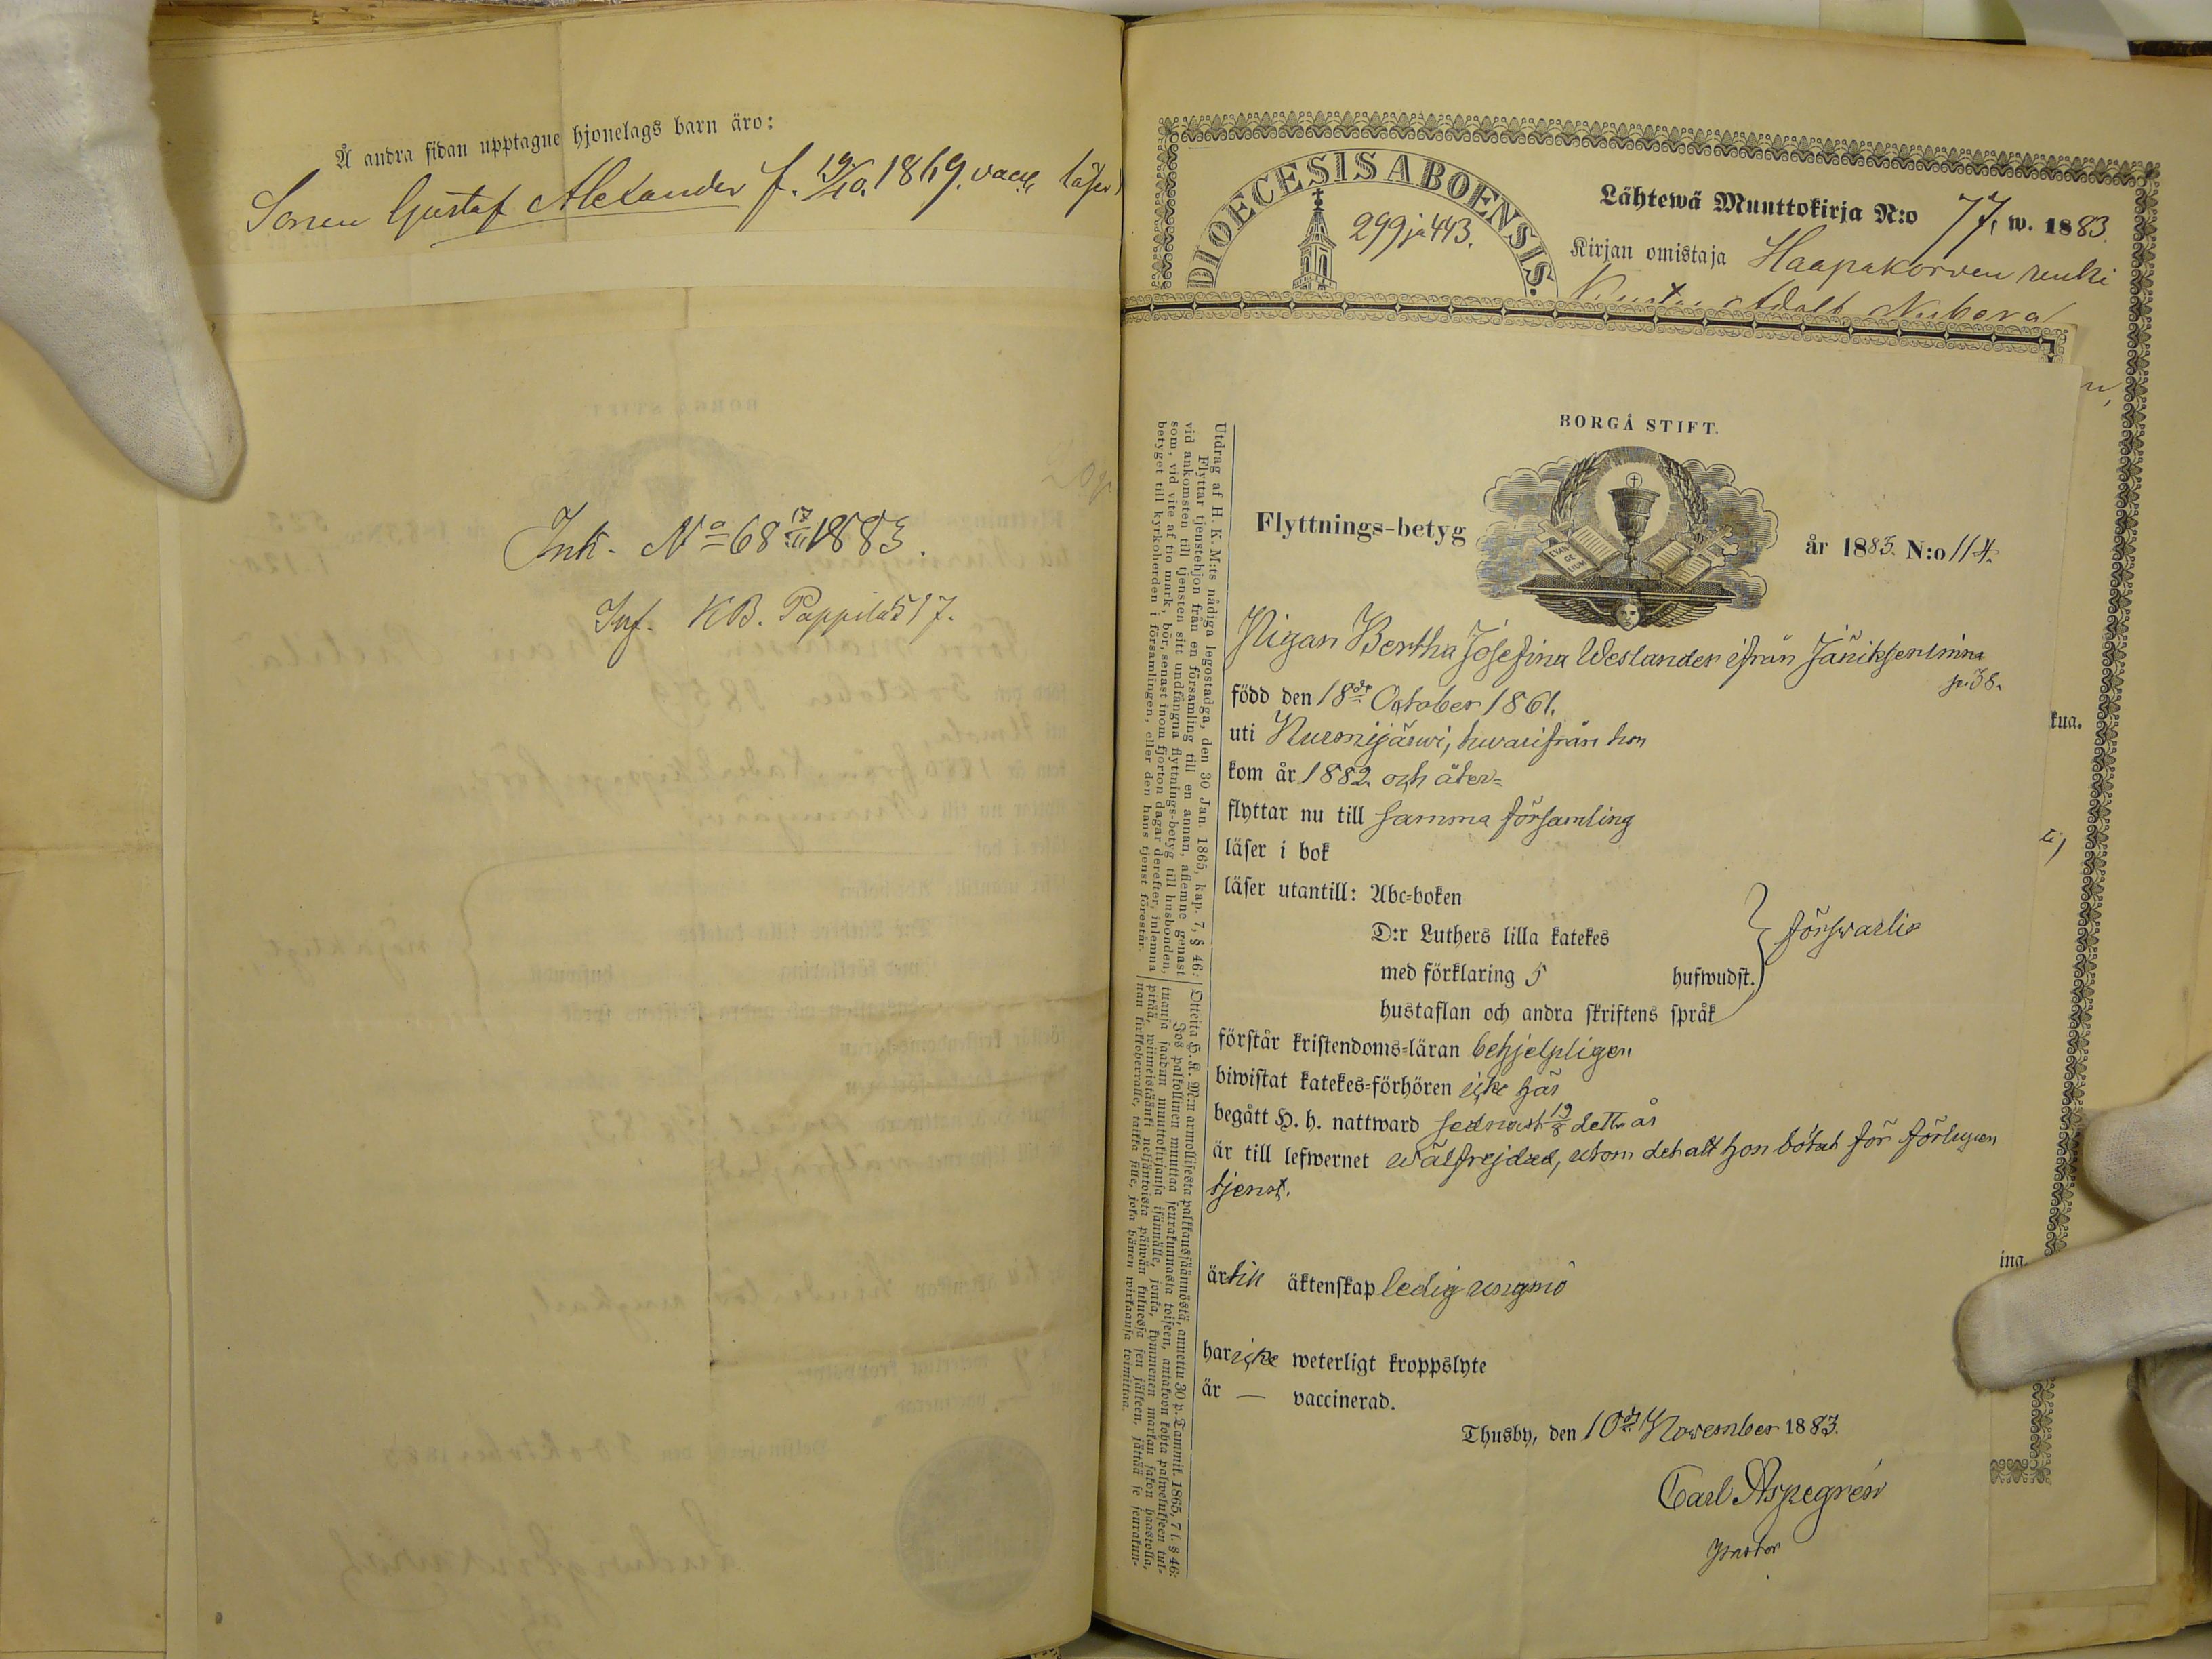 Å andra sidan upptagne hjonelags barn äro:
Sonen Gustaf Alexander f. 19/10. 1869. vacc, läser
Ink. No 68 17/11 1883.
Inf. KB. Pappila 517.
DIOECESIS ABOENSIS.
299 ja 443.
Lähtewä Muuttokirja N:o 77, w. 1883.
Kirjan omistaja Haapakorven renki
Adolf
BORGÅ STIFT.
EVANGELIUM
Flyttnings-betyg
år 1883. N:o 114.
Pigan Bertha Josefina Weslander ifrån Jäniksenlinna
p. 38.
född den 18de October 1861.
uti Nurmijärwi, hwarifrån hon
kom år 1882 och åter=
flyttar nu till samma församling
läser i bok
läser utantill: Abc-boken
D:r Luthers lilla katekes
med förklaring 5 hufwudst.
förswarlig
hustaflan och andra skriftens språk
förstår kristendoms-läran behjelpligen
biwistat katekes-förhören icke här
begått H. h. nattward sednast 19/8 detta år
är till lefwernet wälfrejdad, utom det att hon bötat för förlegen
tjenst.
är till äktenskap ledig ungmö
har icke weterligt kroppslyte
är — vaccinerad.
Thusby, den 10de November 1883.
Carl Aspegrén
pastor
Utdrag af H. K. M:ts nådiga legostadga, den 30 Jan. 1865, kap. 7, § 46:
Flyttar tjenstehjon från en församling till en annan, aflemne genast
vid ankomsten till tjensten sitt undfångna flyttnings-betyg till husbonden,
som, vid vite af tio mrk, bör, senast inom fjorton dagar derefter, inlemna
betyget till kyrkoherden i församlingen, eller den hans tjenst förestår.
Otteita H. K. M:n armollisesta palkkaussäännöstä, annettu 30 p. Tammik. 1865, 7 l. § 46:
Jos palkollinen muuttaa seurakunnasta toiseen, antakoon kohta palwelukseen tul-
tuansa saadun muuttokirjansa isännälle, jonka, kymmenen markan sakon haastolla,
pitää, wiimeistäänki neljäntoista päiwän kuluessa sen jälkeen, jättää se seurakun-
nan kirkkoherralle, taikka sille, joka hänen wirkaansa toimittaa.
kua.
ina.